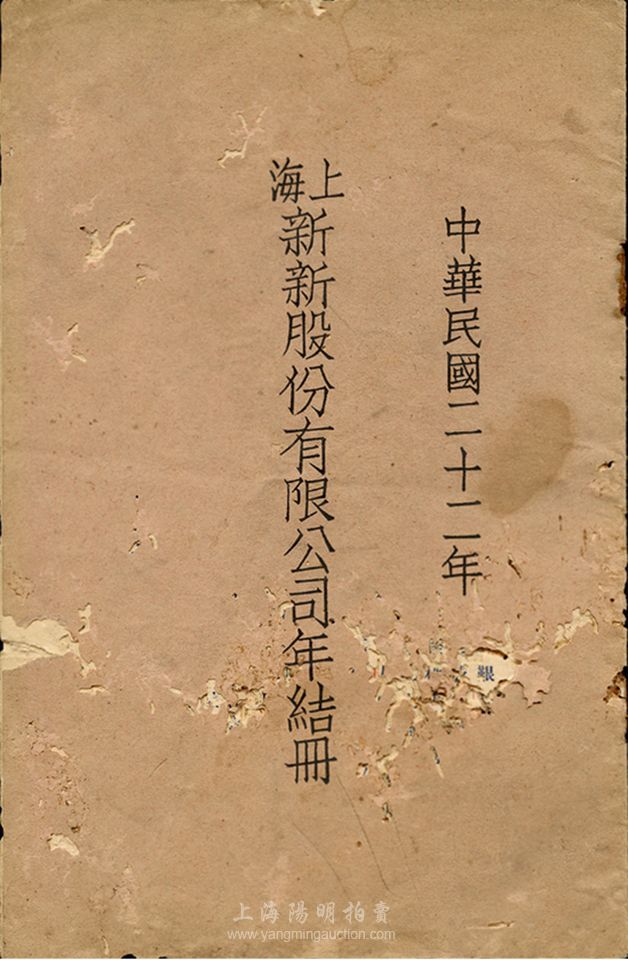 中華民國二十二年
上海
新新股份有限公司年結冊
上海陽明拍賣
www.yangmingauction.com